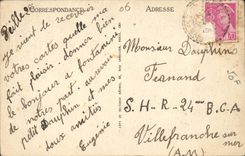 CORRESPONDANCE
ADRESSE
06
je vient de recevoir
votre cartes quelle ma
fait plaisir. donner bien
le bonjour a fontanine
de notre part.
petit Dauphin et
doux amitiés
Eugénie
Monsieur Dauphin
Fernand
S-H-R-24-B.C.A
Villefranche sur
mer
(A.M)